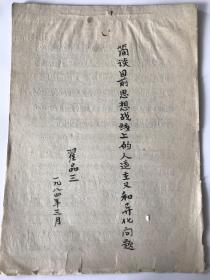 简谈目前思想战线上的人道主义和异化问题
翟品三
一九八四年三月